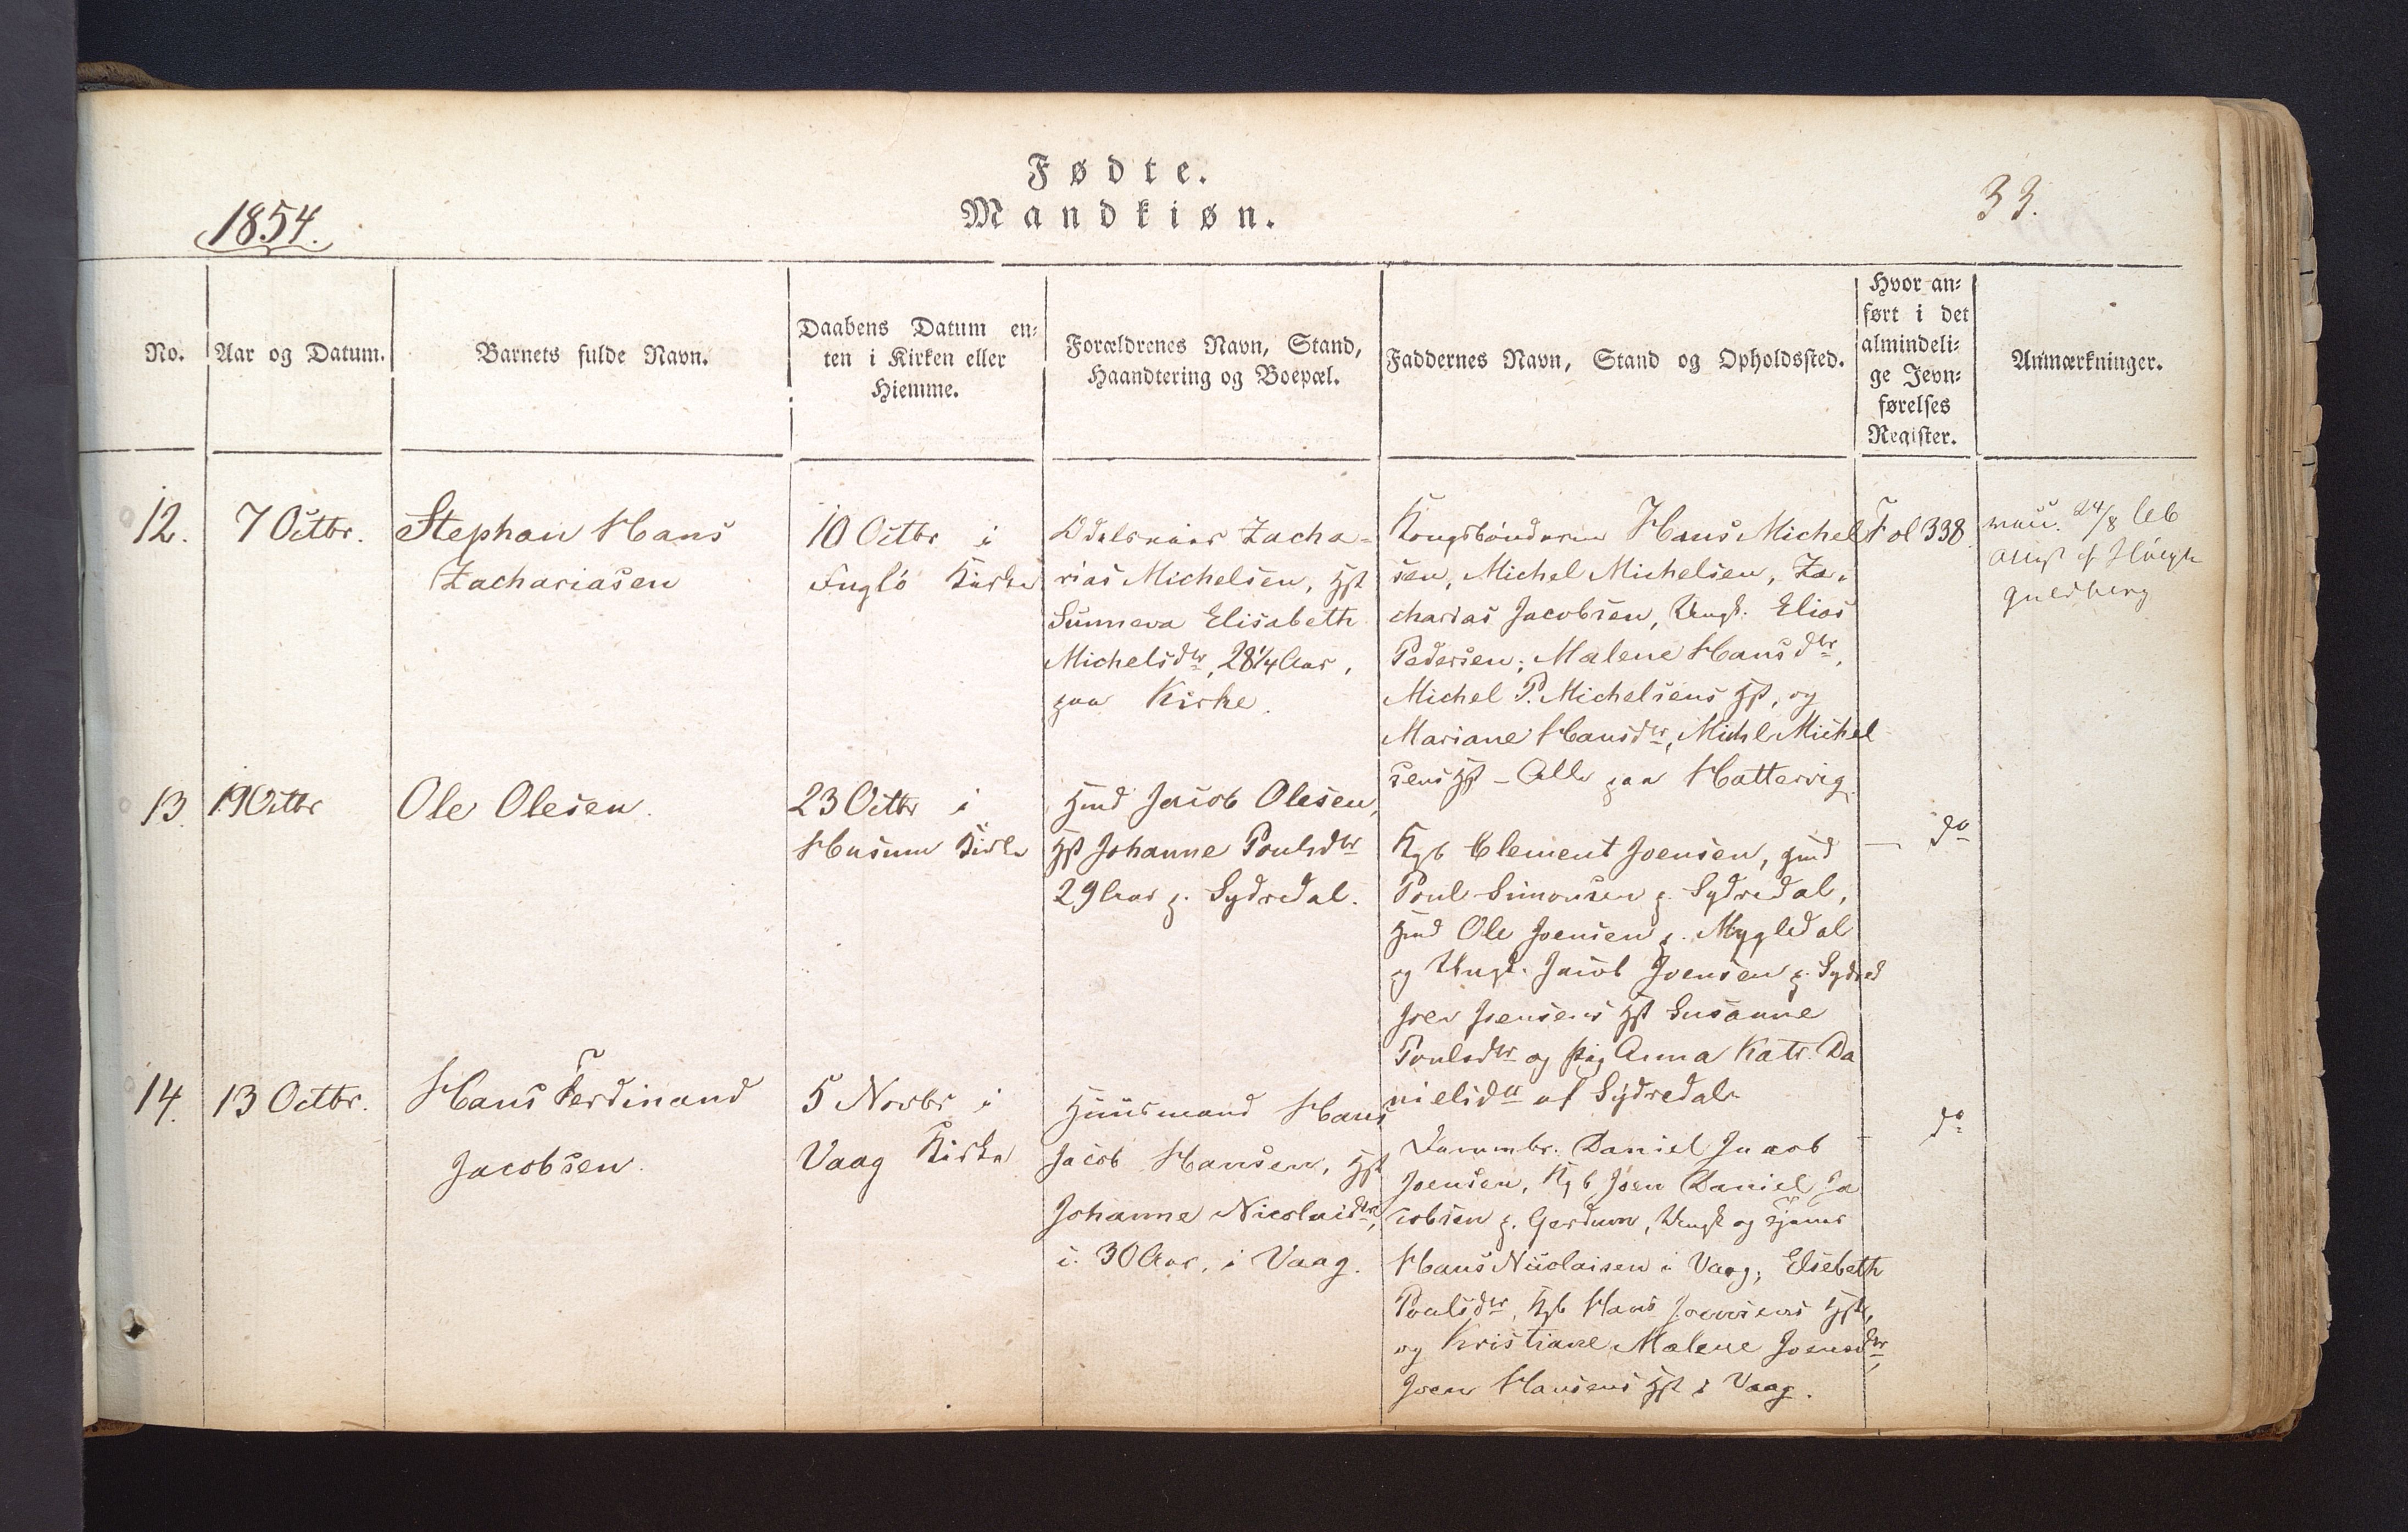 Fødte.
Mandkiøn.
1854.
33.
No.
Aar og Datum.
Barnets fulde Navn.
Daabens Datum en-
ten i Kirken eller
Hiemme.
Forældrenes Navn, Stand,
Haandtering og Boepæl.
Faddernes Navn, Stand og Opholdssted.
Hvor an-
ført i det
almindeli-
ge Jevn-
førelses
Register.
Anmærkninger.
12.
7 Octbr.
Stephan Hans
Zachariasen
10 Octbr i
Fuglö Kirke
Zacha-
rias Michelsen, Hst
Sunneva Elisabeth
Michelsdtr, 28¼ Aar,
paa Kirke.
Kongsbönderne Hans Michel
sen, Michel Michelsen, Za-
charias Jacobsen, Ungk. Elias
Pedersen; Malene Hansdtr,
Michel P. Michelsens Hst, og
Mariane Hansdtr, Michl Michel
sens Hst - Alle paa Hattervig.
Fol 338.
24/8
13.
19 Octbr
Ole Olesen.
23 Octbr i
Husum Kirke
Hmd Jacob Olesen,
Hst Johanne Poulsdtr
29 Aar p. Sydredal.
Kgb Clement Joensen, gmd
Poul Simonsen p. Sydredal,
Hmd Ole Joensen p. Mygledal
og Ungk. Jacob Joensen p. Sydred
Joen Joensens Hst Susanne
Poulsdtr og Pig Anna Katr. Da
nielsdtr af Sydredal
— do
14.
13 Octbr.
Hans Ferdinand
Jacobsen.
5 Novbr i
Vaag Kirke
Huusmand Hans
Jacob Hansen, Hst
Johanne Nicolaidtr,
i. 30 Aar, i Vaag.
Daniel Jacob
Joensen, Kgb Joen Daniel Ja
cobsen p. Gerdum, Ungk og
Hans Nicolaisen i Vaag; Elsebeth
Poulsdtr, Kgb Hans Joensens Hst,
og Kristiane Malene Joensdtr,
Joen Hansens Hst i Vaag.
- do